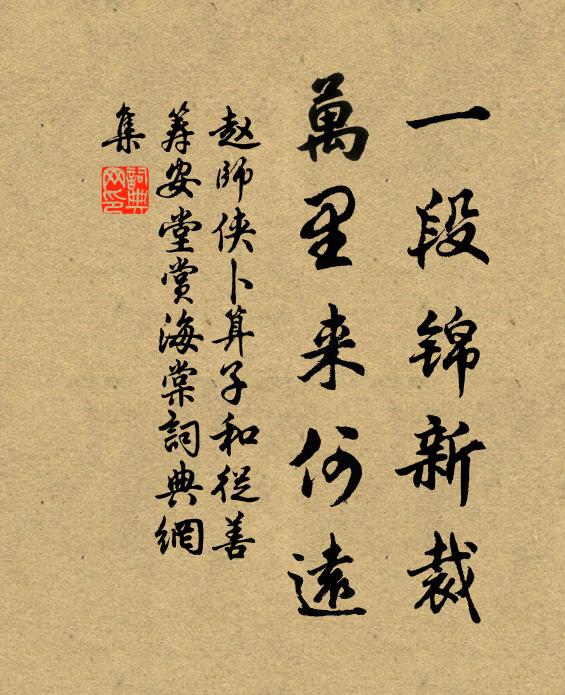 一段锦新裁
萬里来何遠
赵師侠卜算子和從善
筹安堂賞海棠詞典網
集
詞典
网印